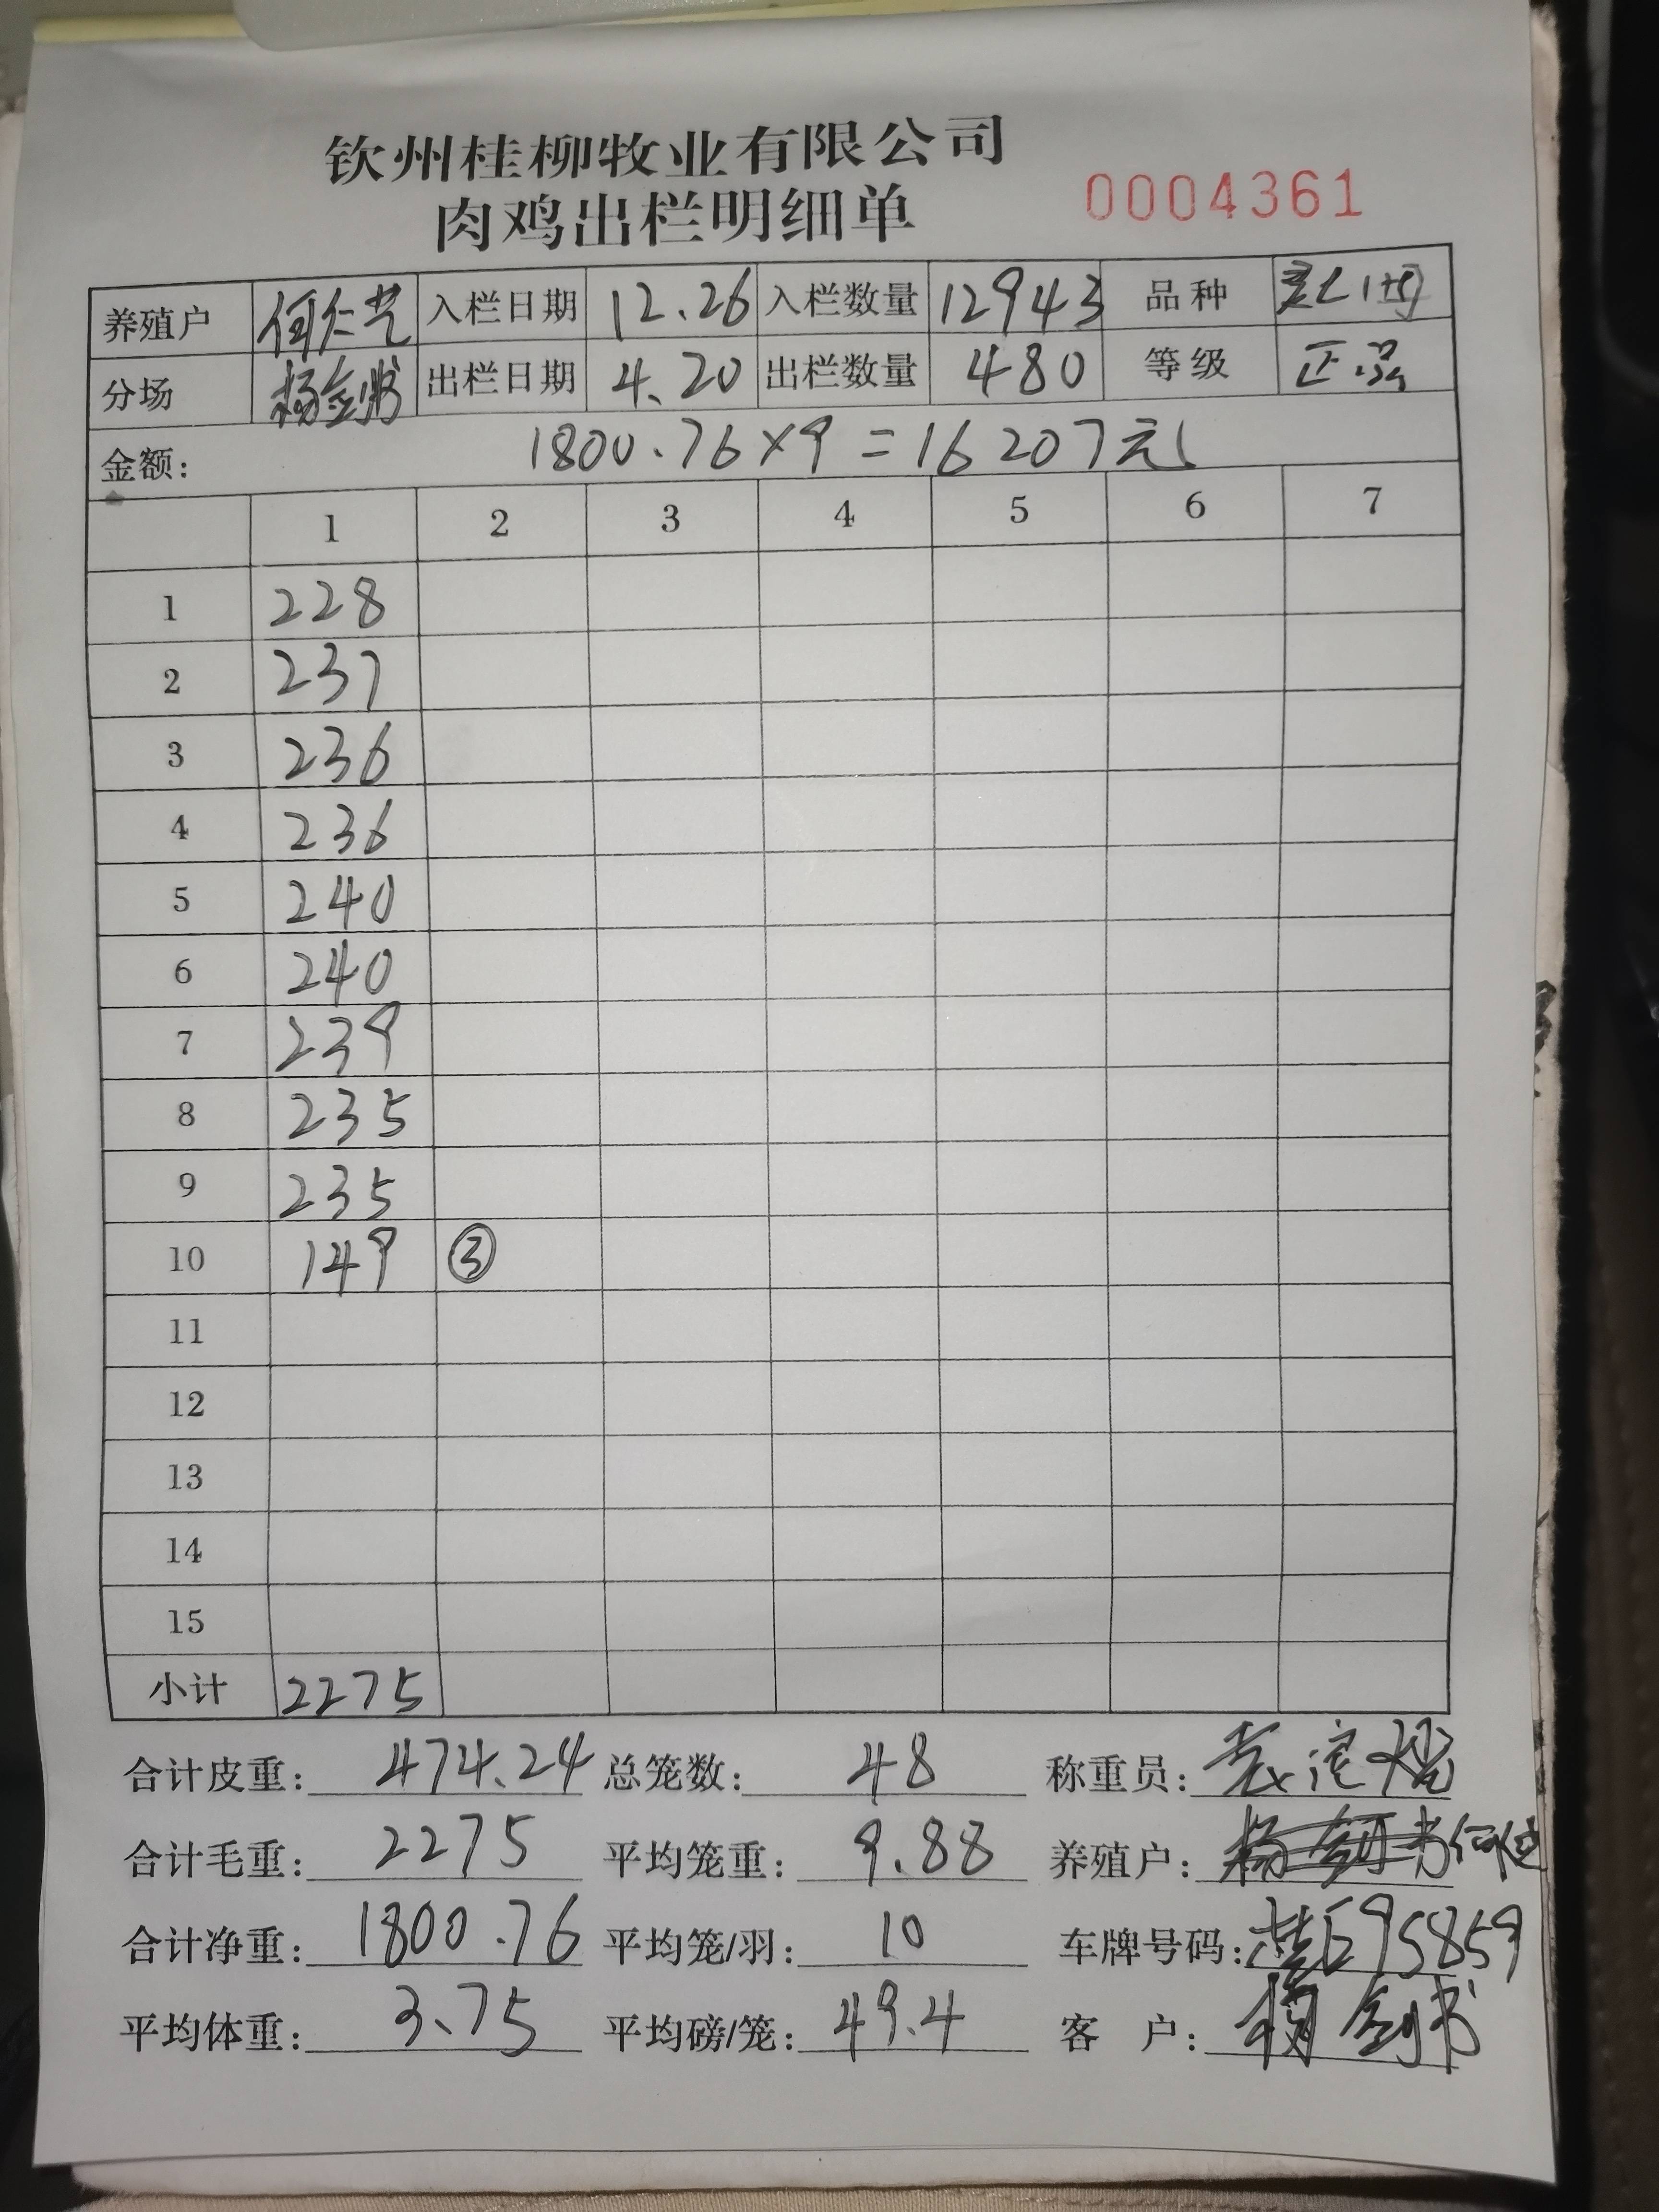 钦州桂柳牧业有限公司
肉鸡出栏明细单 0004361
养殖户 何仁艺 入栏日期 12.26 入栏数量 12943 品种
分场 杨剑书 出栏日期 4.20 出栏数量 480 等级 正品
金额: 1800.76×9=16207元
1 2 3 4 5 6 7
1 228
2 237
3 236
4 236
5 240
6 240
7 239
8 235
9 235
10 149 ③
11
12
13
14
15
小计 2275
合计皮重: 474.24 总笼数: 48 称重员:
合计毛重: 2275 平均笼重: 9.88 养殖户:
合计净重: 1800.76 平均笼/羽: 10 车牌号码: 桂E95859
平均体重: 3.75 平均磅/笼: 49.4 客 户: 杨剑书